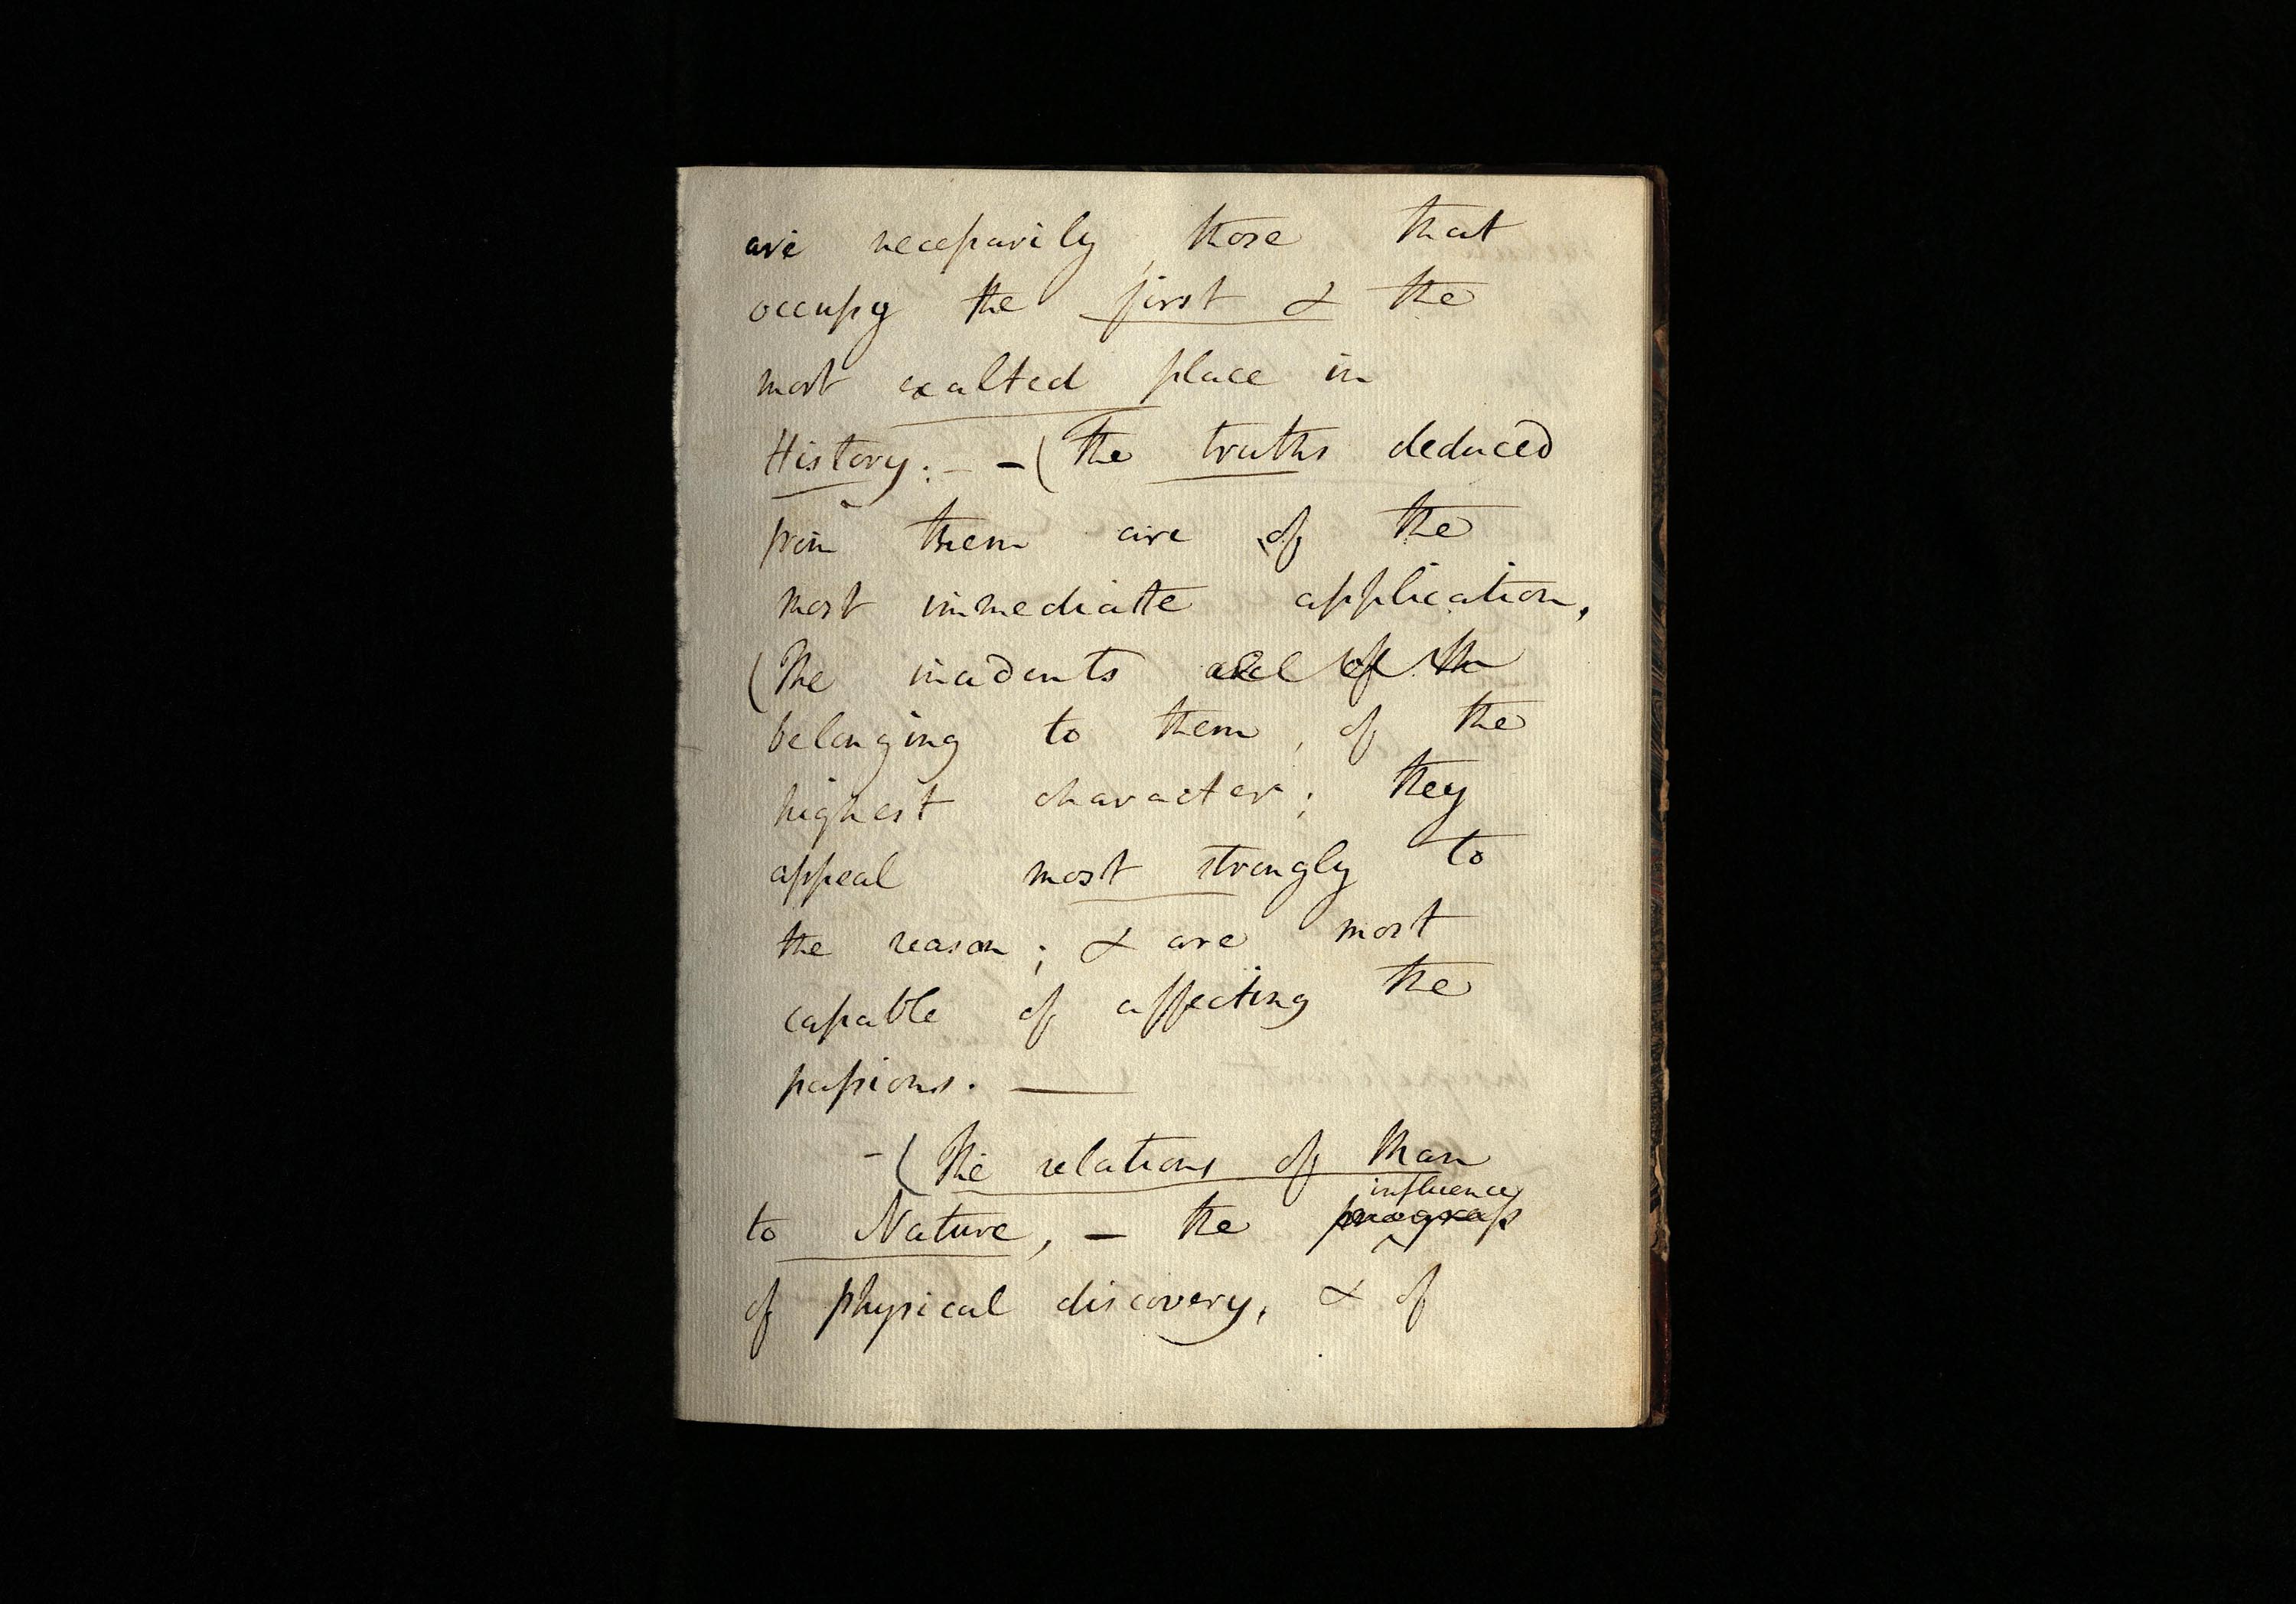 are necessarily those that
occupy the first & the
most exalted place in
History. - - (The truths deduced
from them are of the
most immediate application,
(The incidents
belonging to them, of the
highest character; they
appeal most strongly to
the reason; & are most
capable of affecting the
passions. —
- (The relations of Man
influence
to Nature, - the progress
of physical discovery, & of